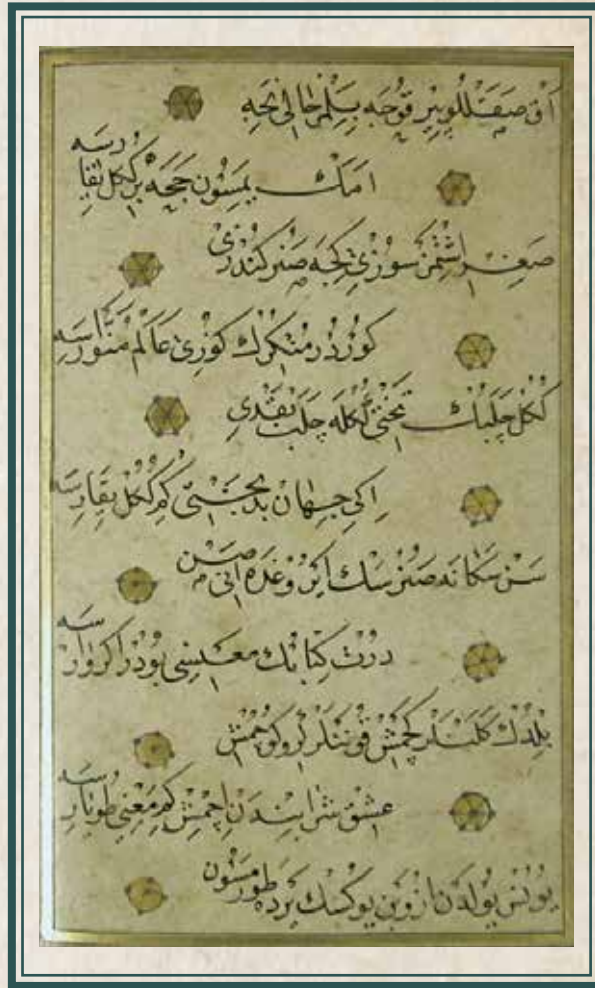 آق صقللو بير قوجه بيلمز حالى نجه
امك يمسون حجه بر ككل يقارسه
صغر اشتمز سوزى كيجه صنر كندزى
كوردر منكرك كوزى عالم منورسه
ككل چلبنك تختى ككله چلب بقدى
ايكى جهان بدبختى كم ككل يقارسه
سن سكا نه صنرسك ايروغه ده انى صن
درت كتابك معنيسى بودر اكر وارسه
بلدك كلنلر كچمش قوننلر كرو كوچمش
عشق شرابندن ايچمش كم معنى طويارسه
يونس يولدن ازوبن يوكسك يرده طورمسون